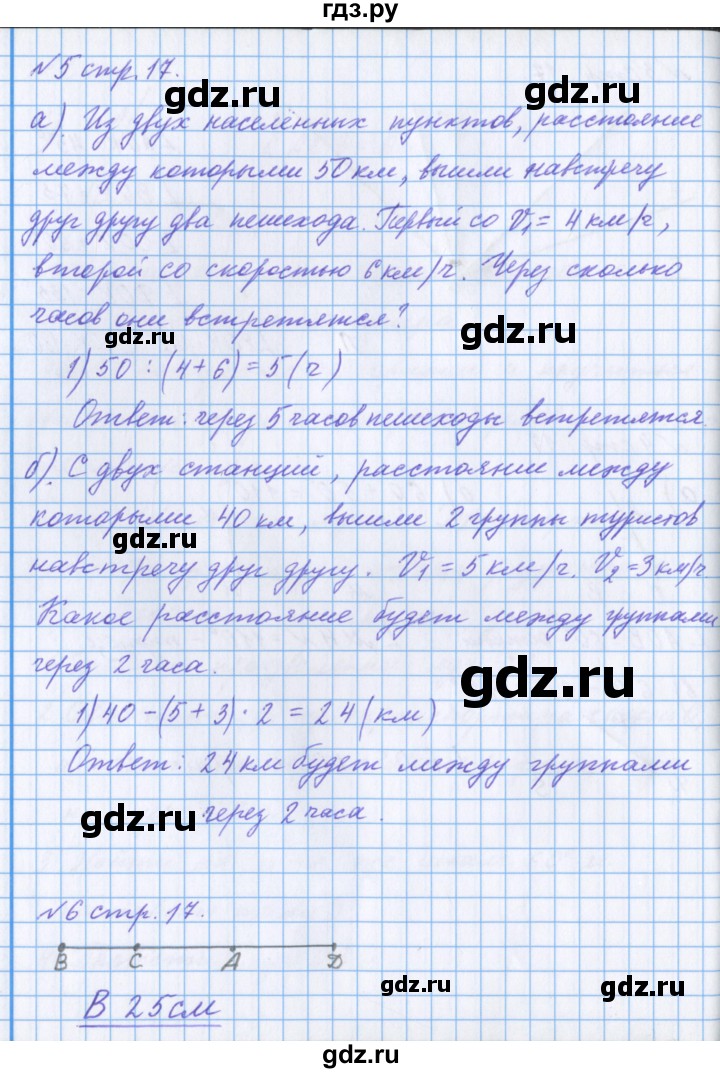 гдз.ру
№5 стр. 17.
gdz.ru
gdz.ru
а). Из двух населённых пунктов, расстояние
между которыми 50 км, вышли навстречу
друг другу два пешехода. Первый со V₁ = 4 км/ч,
второй со скоростью 6 км/ч. Через сколько
часов они встретятся?
gdz.ru
gdz.ru
1) 50 : (4 + 6) = 5 (ч)
Ответ: через 5 часов пешеходы встретятся.
б). С двух станций, расстояние между
которыми 40 км, вышли 2 группы туристов
gdz.ru
навстречу друг другу. V₁ = 5 км/ч. V₂ = 3 км/ч.
Какое расстояние будет между группами
через 2 часа.
gdz.ru
1) 40 - (5 + 3) · 2 = 24 (км)
Ответ: 24 км будет между группами
через 2 часа.
gdz.ru
№6 стр. 17.
В С А D
gdz.ru
gdz.ru
В 25см
gdz.ru